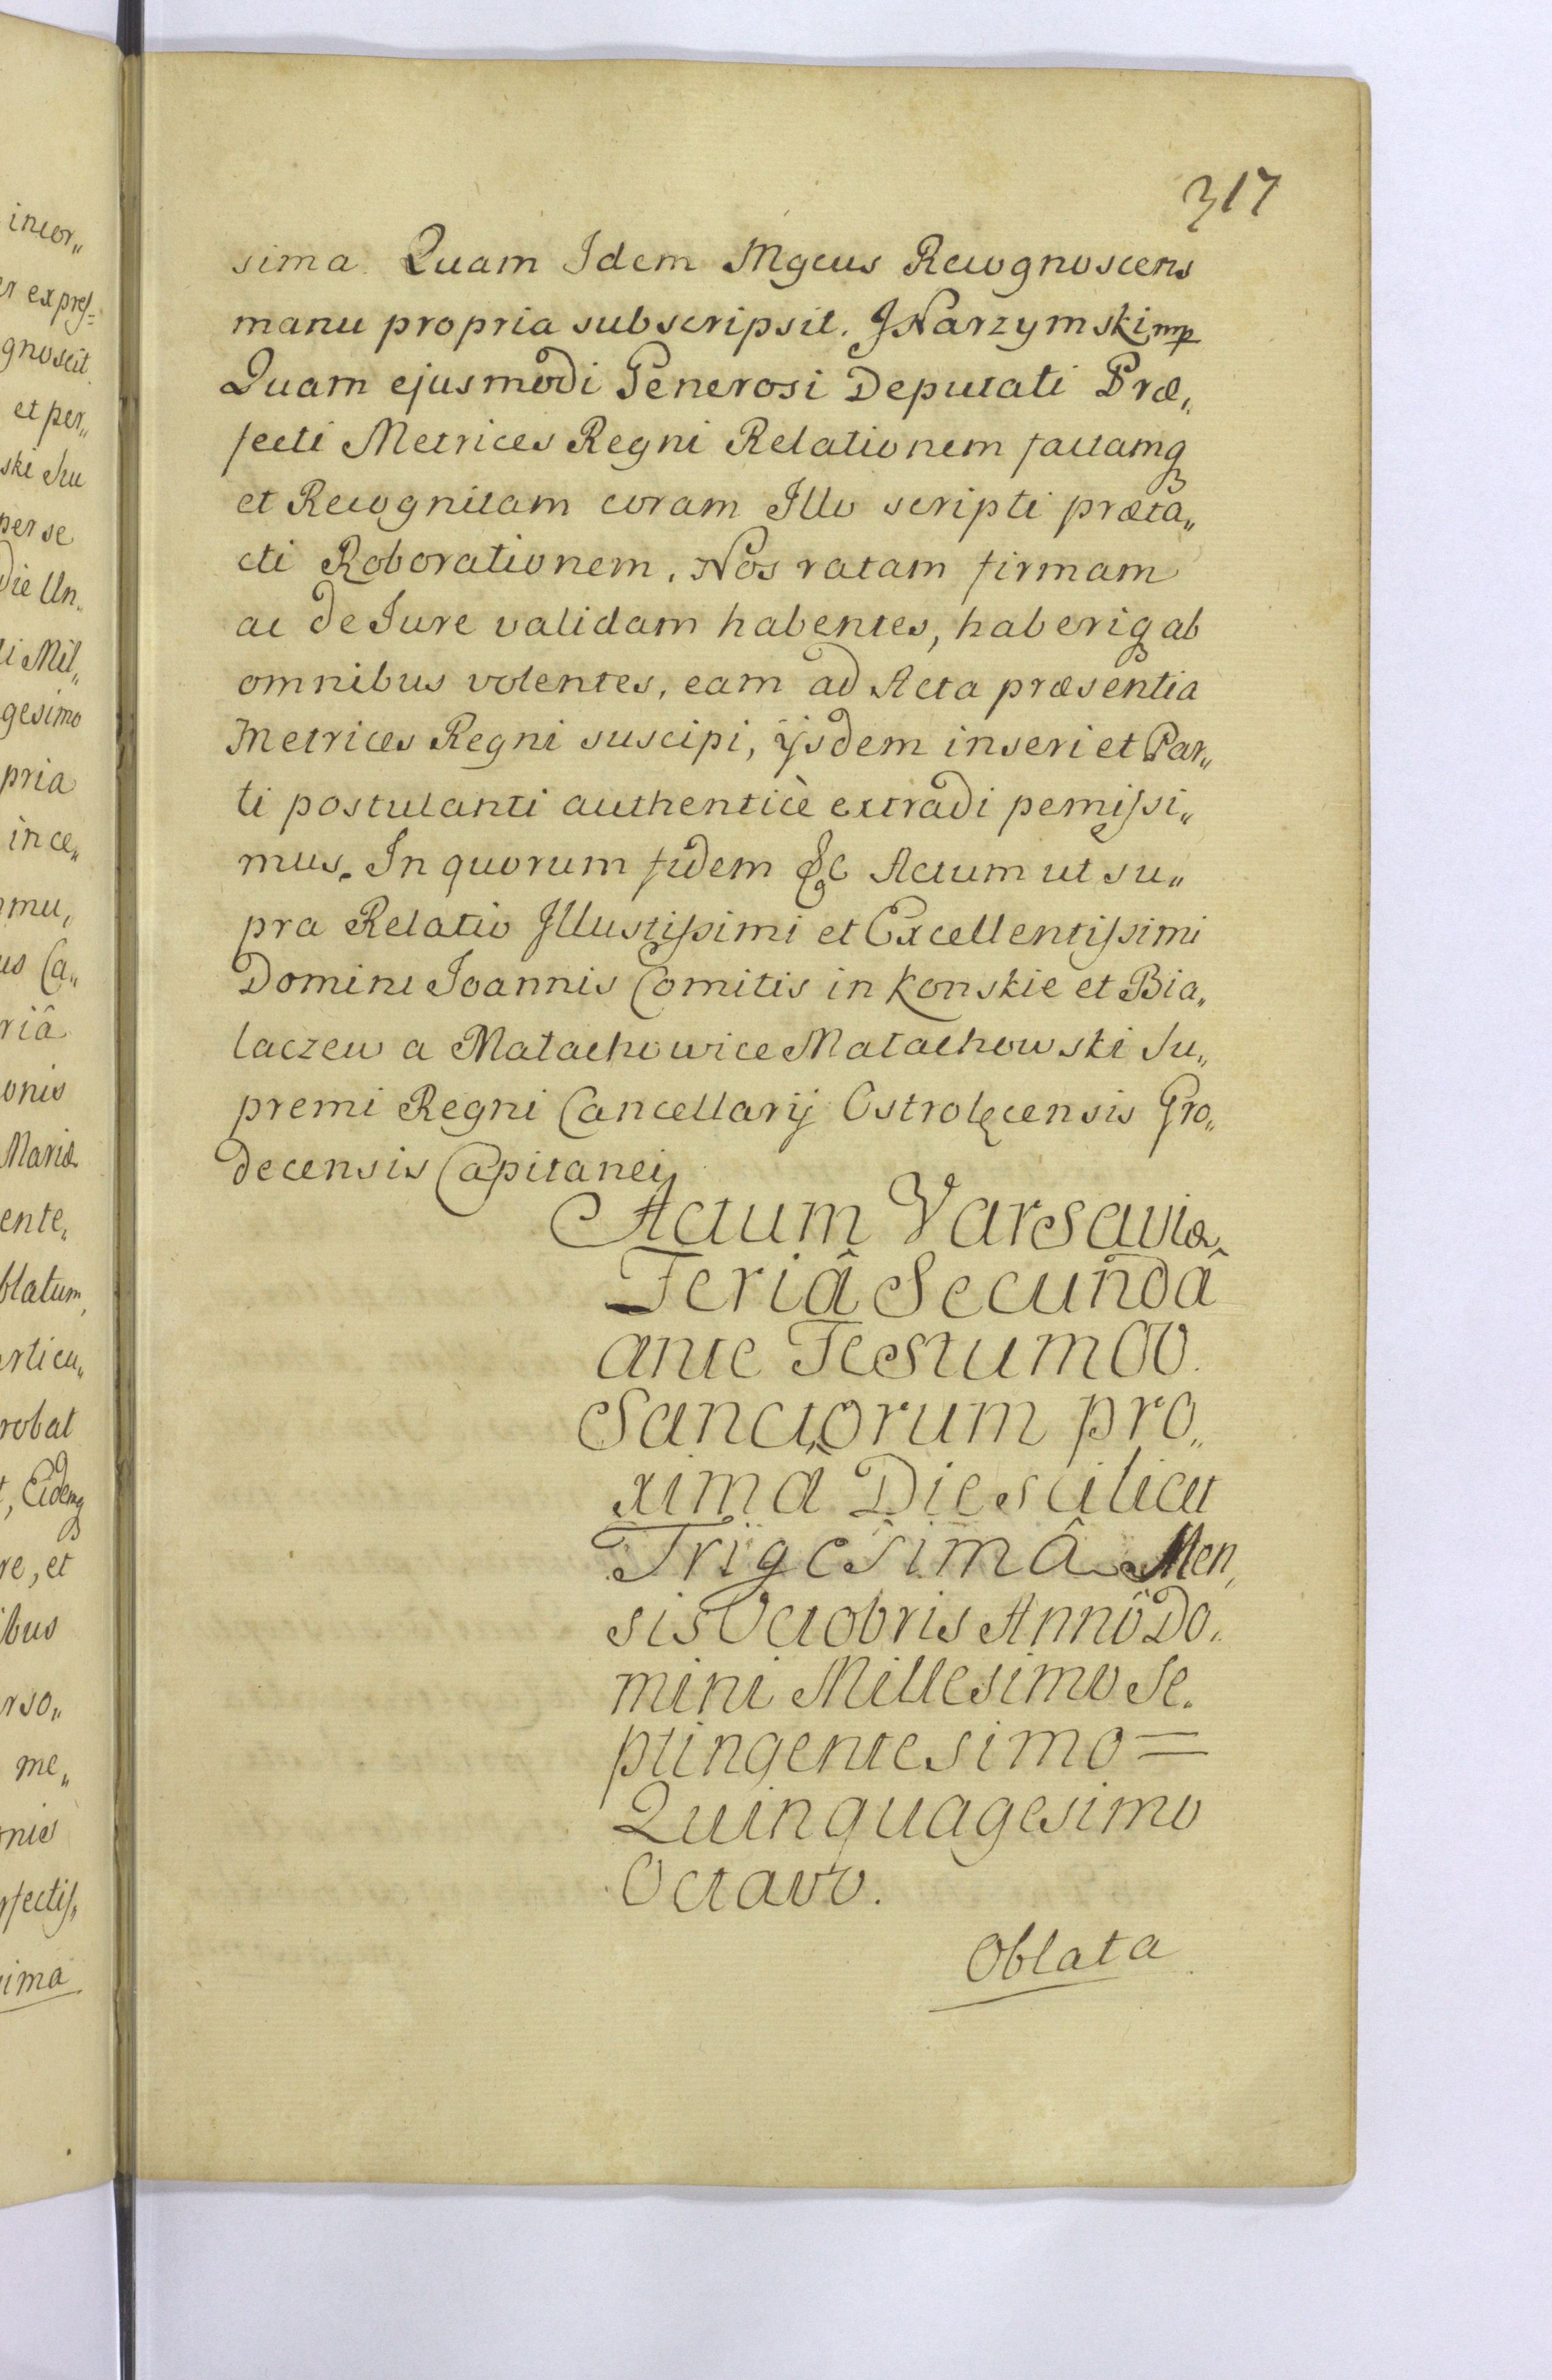 317
sima. Quam Idem Mgcus Recognoscens
manu propria subscripsit. JNarzymski mp
Quam ejusmodi Generosi Deputati Præ„
fecti Metrices Regni Relationem factamq
et Recognitam coram Illo scripti præta„
cti Roborationem. Nos ratam firmam
ac de Iure validam habentes, haberiq ab
omnibus volentes, eam ad Acta præsentia
Metrices Regni suscipi, ijsdem inseri et Par„
ti postulanti authenticè extradi pemissi„
mus. In quorum fidem &c Actum ut su„
pra Relatio Illustissimi et Excellentissimi
Domini Joannis Comitis in Konskie et Bia„
laczew a Małachowice Małachowski Su„
premi Regni Cancellarij Ostrolęcensis Gro„
decensis Capitanei
Actum Varsaviæ
Feriâ Secundâ
ante Festum OO.
Sanctorum pro„
ximâ Die scilicet
Trigesimâ Men„
sis Octobris Annô Do„
mini Millesimo Se„
ptingentesimo =
Quinquagesimo
Octavo.
Oblata
incor„
er expres=
gnoscit
et per„
ski Su
per se
Die Un„
li Mil„
gesimo
pria
in ce„
mu„
us Ca„
riâ
onis
Mariæ
ente„
blatum,
articu„
robat
t, Eidemq
re, et
ibus
rso„
me„
nies
fectis„
sima